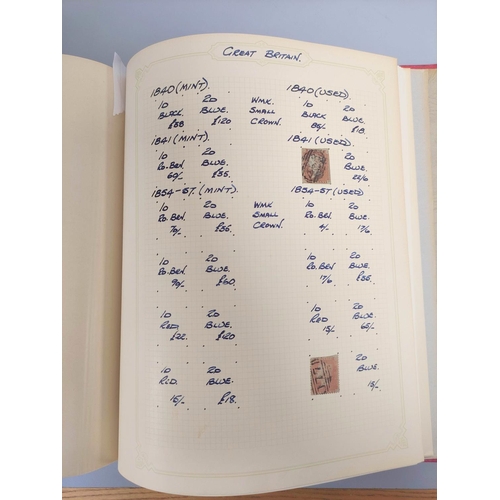 GREAT BRITAIN.
1840 (MINT). 1840 (USED).
1D 2D WMK. 1D 2D
BLACK BLUE. SMALL BLACK BLUE.
£58 £120 CROWN. 85/- £18.
1841 (MINT). 1841 (USED).
1D 2D 2D
RD. BRN. BLUE. BLUE.
69/- £55. 22/6
1854-57. (MINT) 1854-57 (USED)
1D 2D WMK 1D 2D
RD. BRN. BLUE. SMALL RD. BRN. BLUE.
70/- £55. CROWN. 4/- 17/6
1D 2D 1D 2D
RD. BRN BLUE. RD. BRN BLUE.
90/- £60. 17/6 £55.
1D 2D 1D 2D
RED, BLUE. RED BLUE.
£22. £120 15/- 65/-
1D 2D 2D
RED. BLUE. BLUE.
15/- £18. 15/-